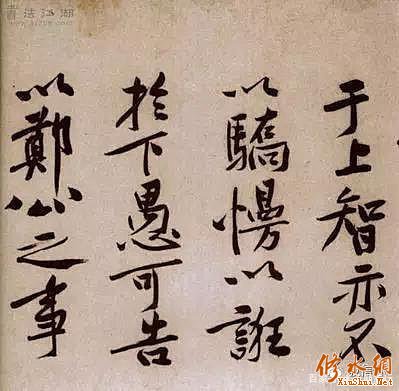 于上智亦不
以驕慢以誑
於下愚可告
以鄭公之事
書法江湖
修水網
XinShui.Net